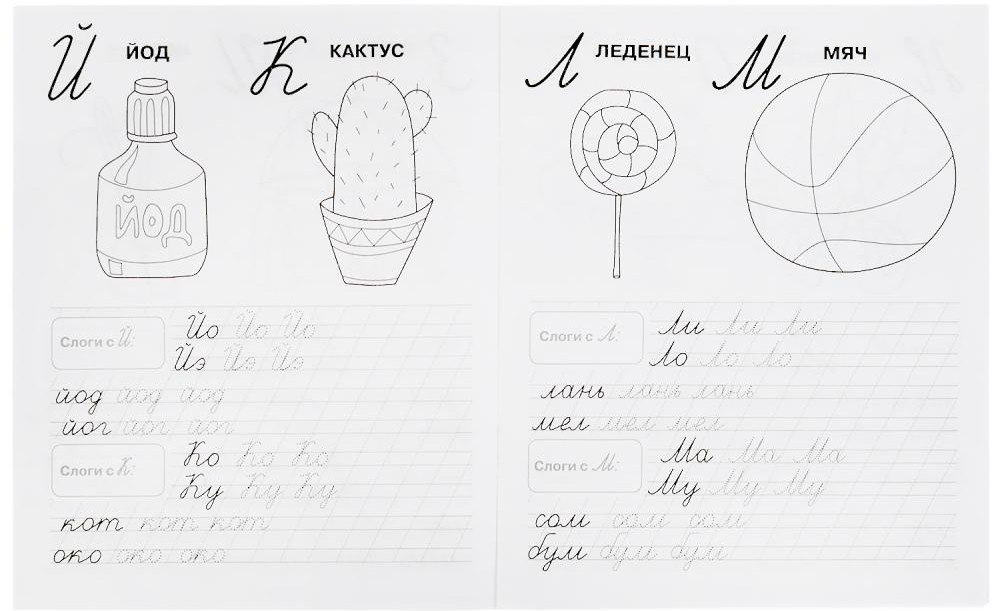 Й ЙОД К КАКТУС
ЙОД
Слоги с Й:
Йо Йо Йо
Йэ Йэ Йэ
йод йод йод
йог йог йог
Слоги с К:
Ко Ко Ко
Ку Ку Ку
кот кот кот
око око око
Л ЛЕДЕНЕЦ М МЯЧ
Слоги с Л:
Ли Ли Ли
Ло Ло Ло
лань лань лань
мел мел мел
Слоги с М:
Ма Ма Ма
Му Му Му
сом сом сом
бум бум бум